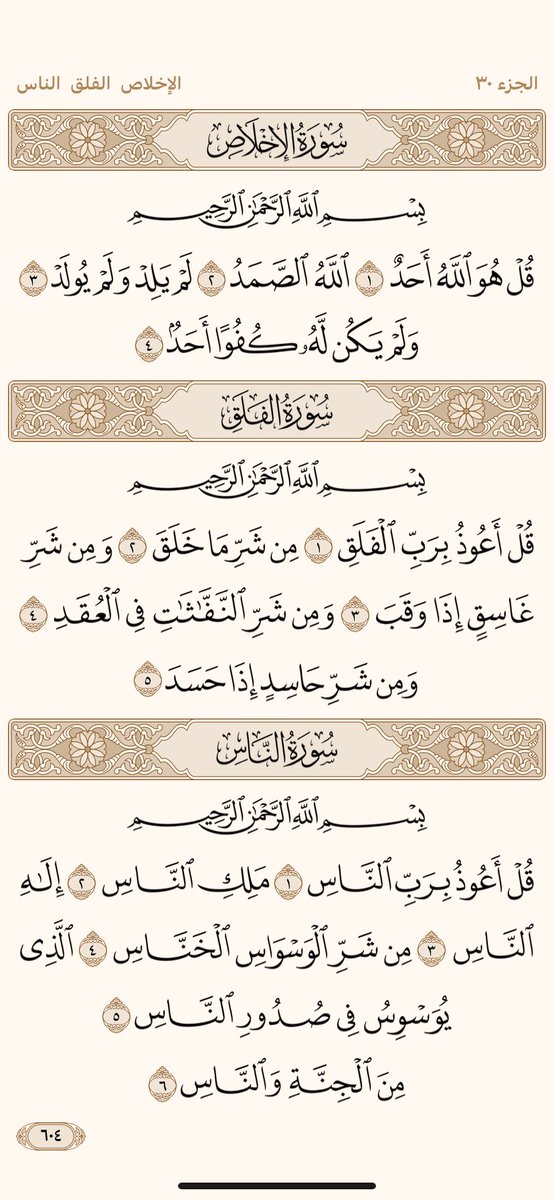 الجزء ٣٠
الإخلاص الفلق الناس
سُورَةُ الإِخْلَاصِ
بِسْمِ ٱللَّهِ ٱلرَّحْمَٰنِ ٱلرَّحِيمِ
قُلْ هُوَ ٱللَّهُ أَحَدٌ ١ ٱللَّهُ ٱلصَّمَدُ ٢ لَمْ يَلِدْ وَلَمْ يُولَدْ ٣
وَلَمْ يَكُن لَّهُۥ كُفُوًا أَحَدٌۢ ٤
سُورَةُ الفَلَقِ
بِسْمِ ٱللَّهِ ٱلرَّحْمَٰنِ ٱلرَّحِيمِ
قُلْ أَعُوذُ بِرَبِّ ٱلْفَلَقِ ١ مِن شَرِّ مَا خَلَقَ ٢ وَمِن شَرِّ
غَاسِقٍ إِذَا وَقَبَ ٣ وَمِن شَرِّ ٱلنَّفَّٰثَٰتِ فِى ٱلْعُقَدِ ٤
وَمِن شَرِّ حَاسِدٍ إِذَا حَسَدَ ٥
سُورَةُ النَّاسِ
بِسْمِ ٱللَّهِ ٱلرَّحْمَٰنِ ٱلرَّحِيمِ
قُلْ أَعُوذُ بِرَبِّ ٱلنَّاسِ ١ مَلِكِ ٱلنَّاسِ ٢ إِلَٰهِ
ٱلنَّاسِ ٣ مِن شَرِّ ٱلْوَسْوَاسِ ٱلْخَنَّاسِ ٤ ٱلَّذِى
يُوَسْوِسُ فِى صُدُورِ ٱلنَّاسِ ٥
مِنَ ٱلْجِنَّةِ وَٱلنَّاسِ ٦
٦٠٤